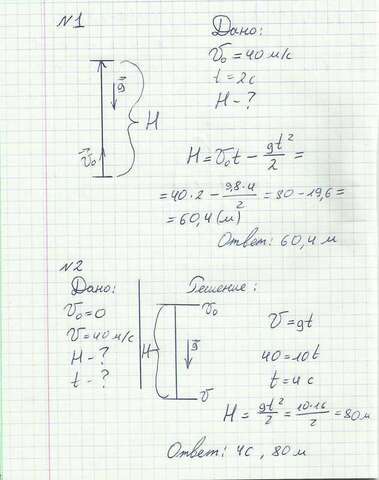 №1
Дано:
V₀ = 40 м/с
t = 2с
H - ?
g
H
V₀
H = V₀t - gt²/2 =
= 40·2 - 9,8·4/2 = 80 - 19,6 =
= 60,4 (м)
Ответ: 60,4 м
№2
Дано:
V₀ = 0
V = 40 м/с
H - ?
t - ?
Решение:
V₀
H
g
V
V = gt
40 = 10t
t = 4с
H = gt²/2 = 10·16/2 = 80м
Ответ: 4с, 80 м